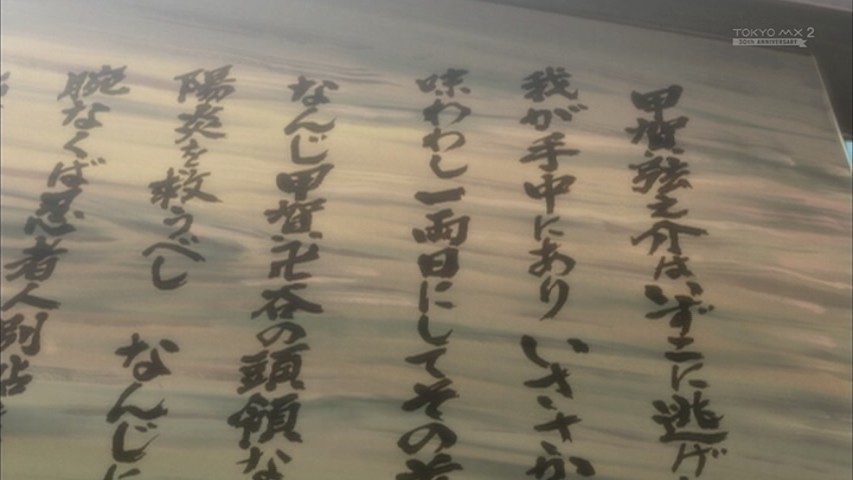 甲賀弦之介はいずこに逃げ
我が手中にあり いささか
味わわし一両日にしてその首
なんじ甲賀卍谷の頭領な
陽炎を救うべし なんじに
腕なくば忍者人別帖
TOKYO MX 2
20TH ANNIVERSARY